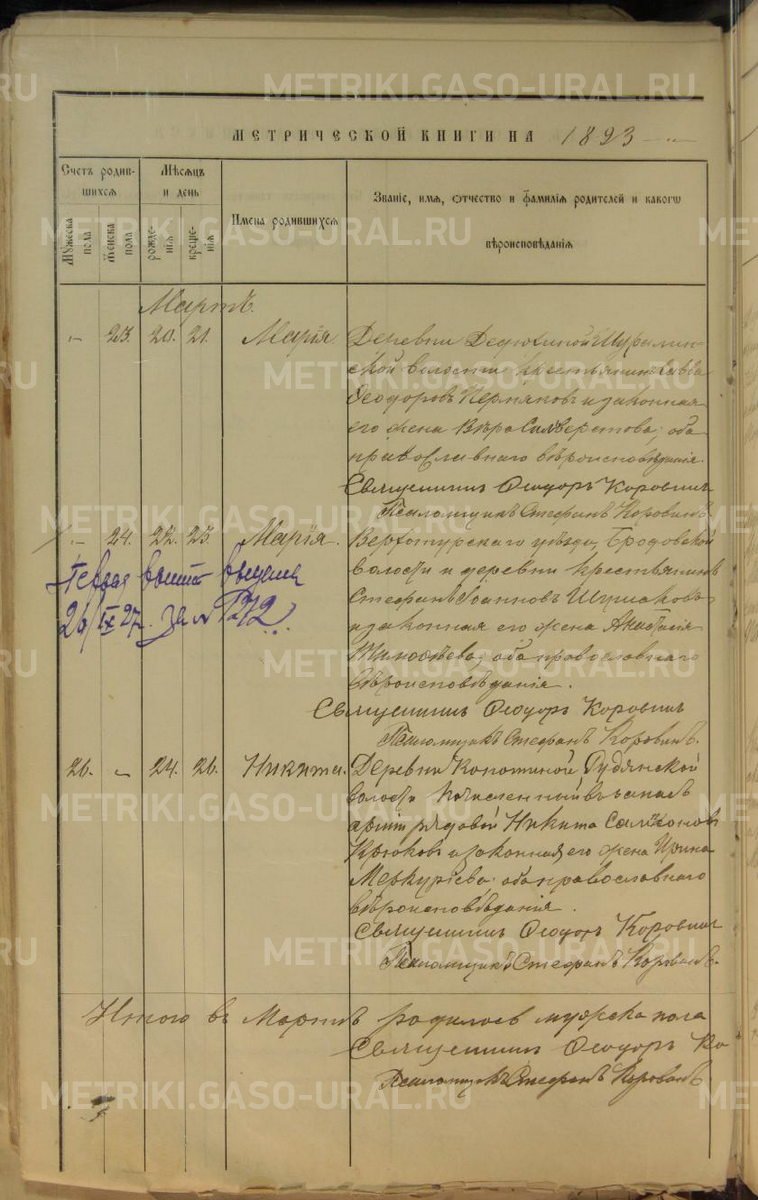 МЕТРИЧЕСКОЙ КНИГИ НА 1893
Счетъ родившихся
Мѣсяцъ и день
Имена родившихся
Званіе, имя, отчество и фамилія родителей и какогѡ
вѣроисповѣданія
Мужеска пола
Женска пола
рожденія
крещенія
Мартъ.
- 23. 20. 21. Марія. Деревни
ской волости крестьянинъ Савва
Ѳеодоровъ Пермяковъ и законная
его жена Вѣра Силвестрова, оба
православнаго вѣроисповѣданія.
Священникъ Ѳеодоръ Коровинъ
Псаломщикъ Стефанъ Коровинъ.
- 24. 22. 23. Марія. Верхотурскаго уѣзда, Бродовской
волости и деревни крестьянинъ
Стефанъ Іоанновъ
и законная его жена Анастасія
Тимоѳѣева, оба православнаго
вѣроисповѣданія.
26/IX 27. за №
Священникъ Ѳеодоръ Коровинъ
Псаломщикъ Стефанъ Коровинъ.
26. - 24. 26. Никита. Деревни
волости въ запасъ
арміи рядовой Никита Самсоновъ
Крюковъ и законная его жена Ирина
Меркуріева, оба православнаго
вѣроисповѣданія.
Священникъ Ѳеодоръ Коровинъ
Псаломщикъ Стефанъ Коровинъ.
Итого въ Мартѣ родилось мужска пола
Священникъ Ѳеодоръ Ко
Псаломщикъ Стефанъ Коровинъ
METRIKI.GASO-URAL.RU